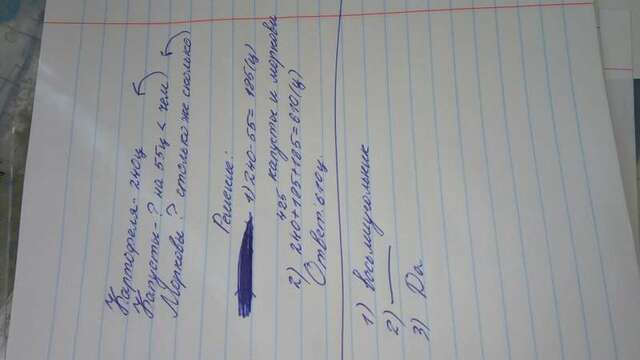 Картофеля - 240ц
Капусты - ? на 55ц < чем
Моркови ? столько же сколько
Решение:
1) 240-55=185(ц)
капусты и моркови
425
2) 240+185+185=610(ц)
Ответ: 610ц.
1) Восьмиугольник
2) ——
3) Да